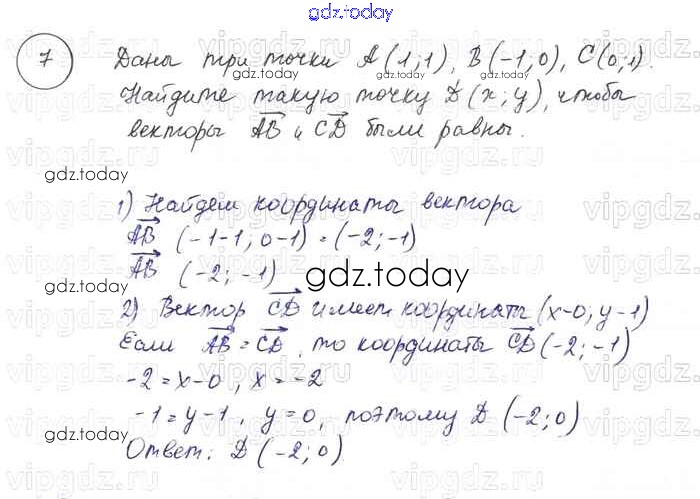 gdz.today
7 Даны три точки A(1;1), B(-1;0), C(0;1).
gdz.today gdz.today
Найдите такую точку D(x;y), чтобы
векторы AB и CD были равны.
gdz.today
1) Найдем координаты вектора
AB (-1-1; 0-1) = (-2; -1)
AB (-2; -1)
gdz.today
2) Вектор CD имеет координаты (x-0; y-1)
gdz.today
Если AB = CD, то координаты CD (-2; -1)
-2 = x-0, x = -2
-1 = y-1, y = 0, поэтому D (-2; 0)
gdz.today gdz.today
Ответ: D (-2; 0)
vipgdz.ru